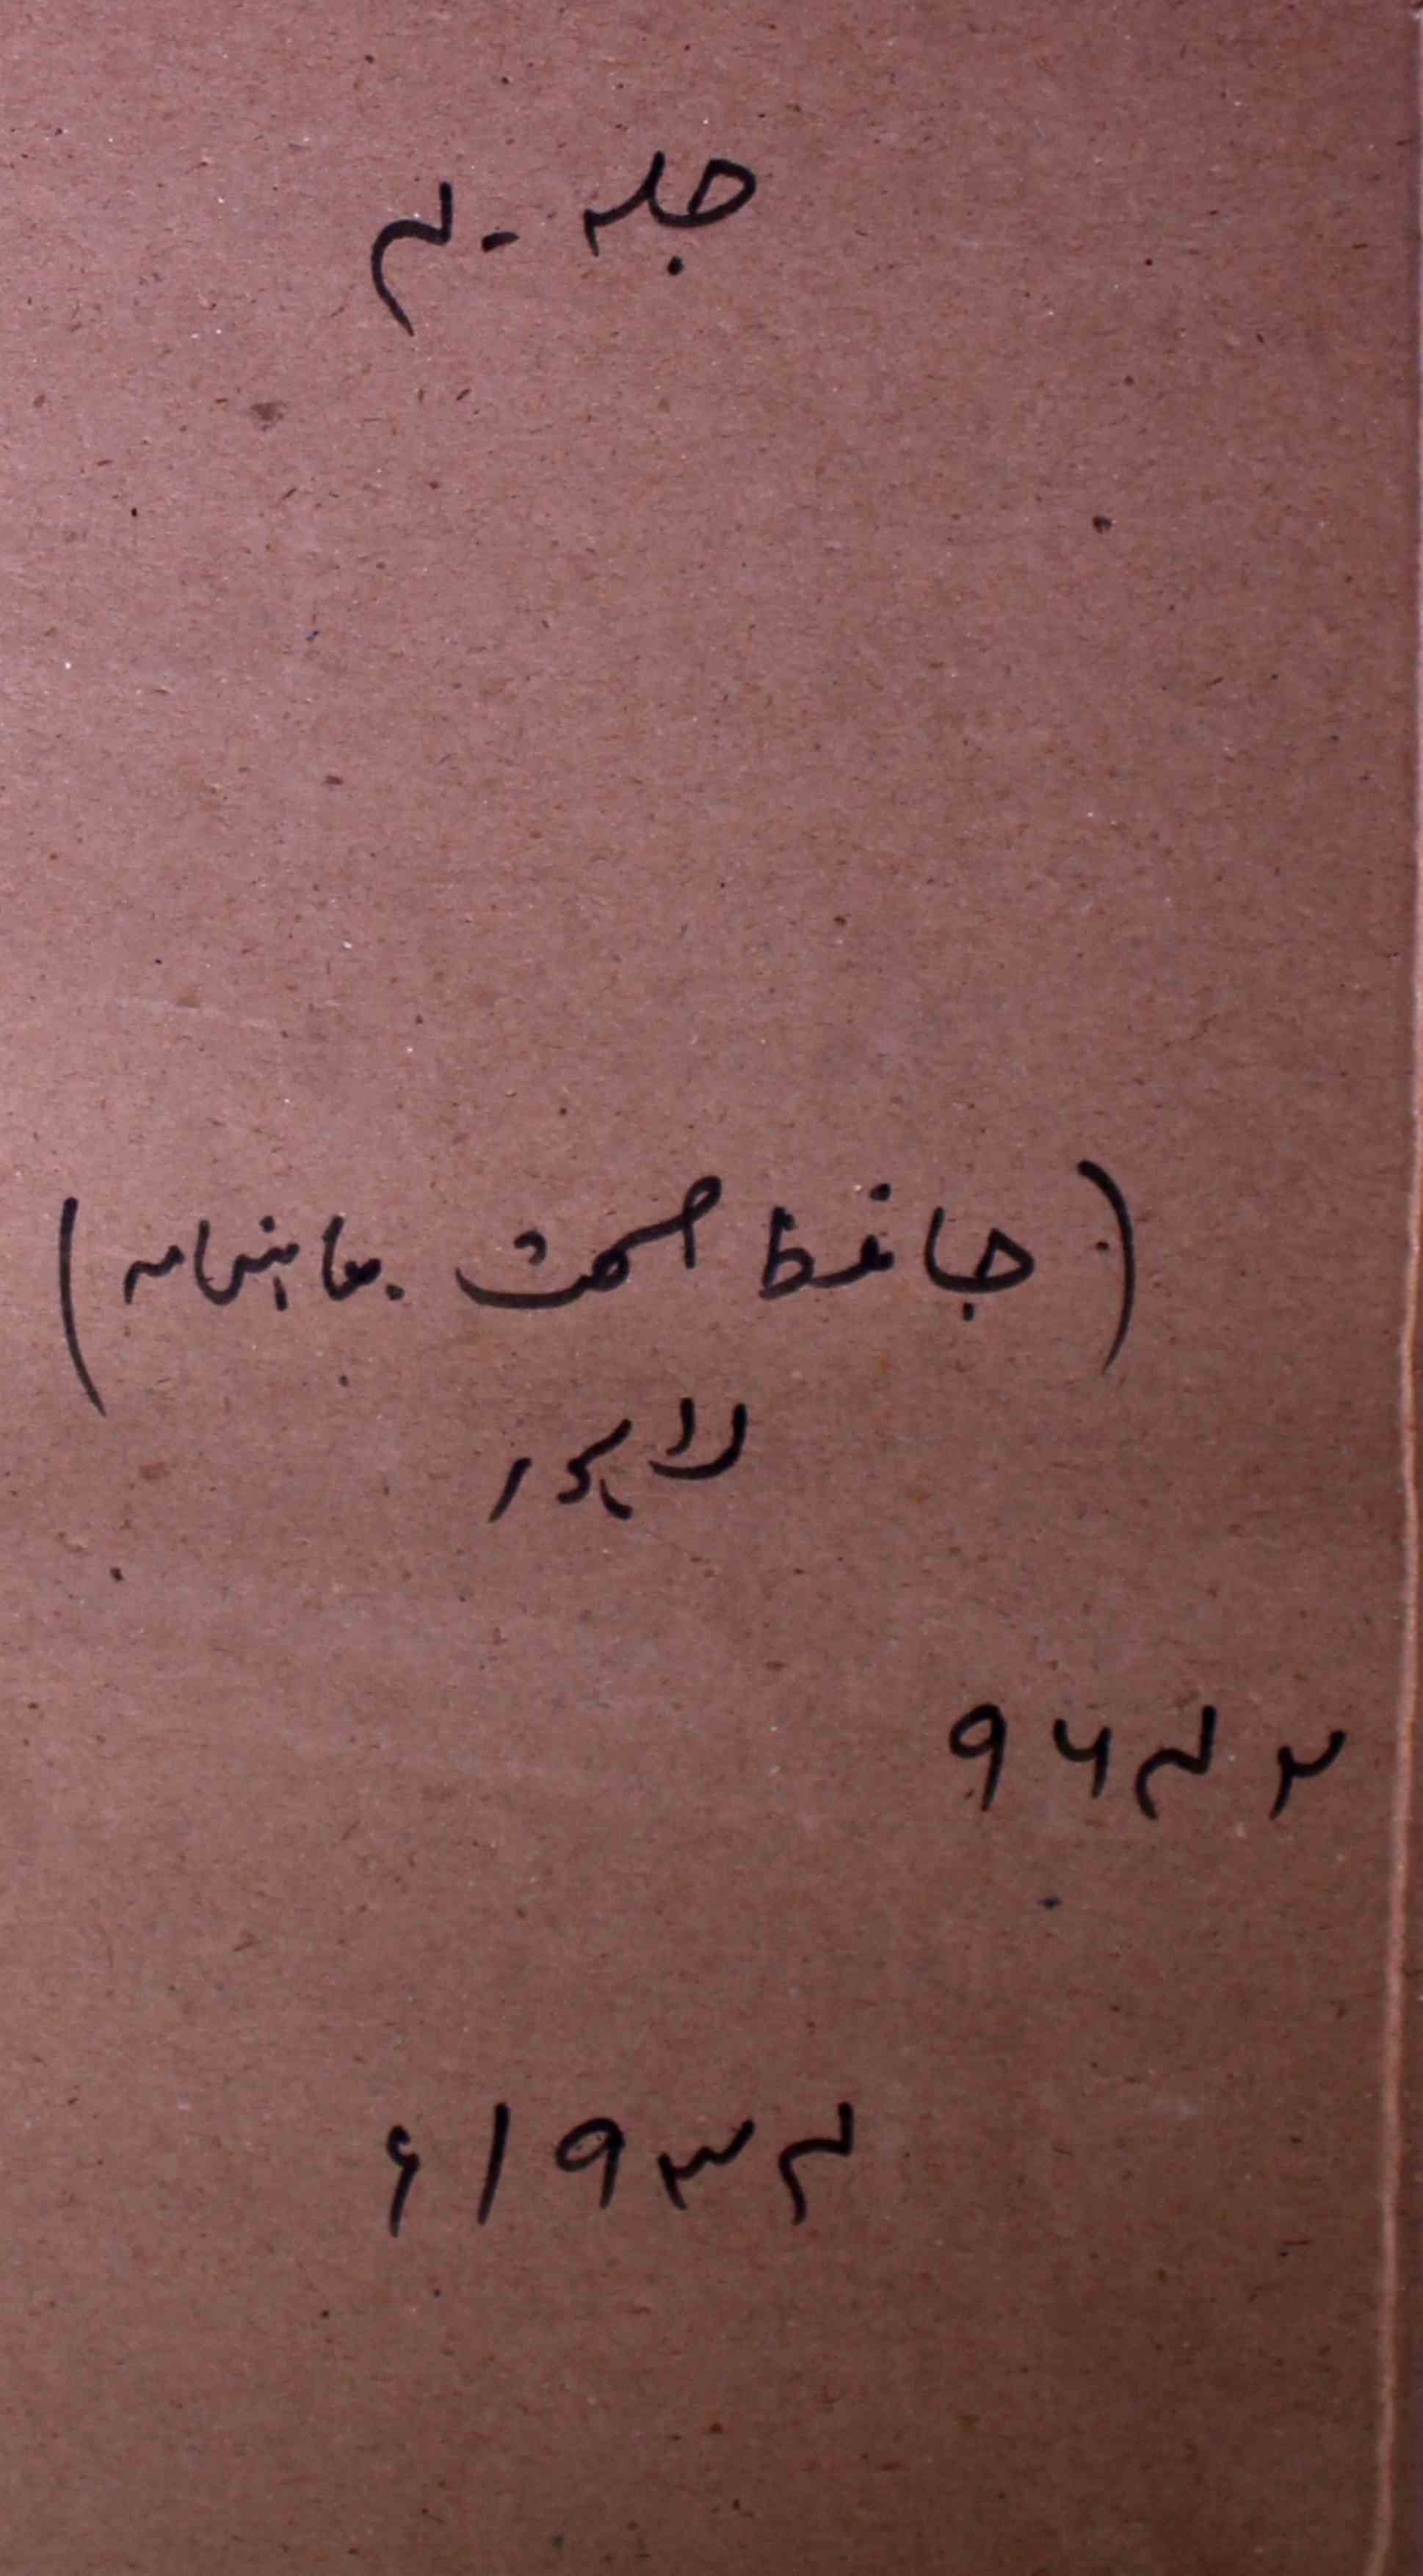 جلد - ۴
(حافظ صحت ماہنامہ)
لاہور
۹۶۴۲
۱۹۳۴ء